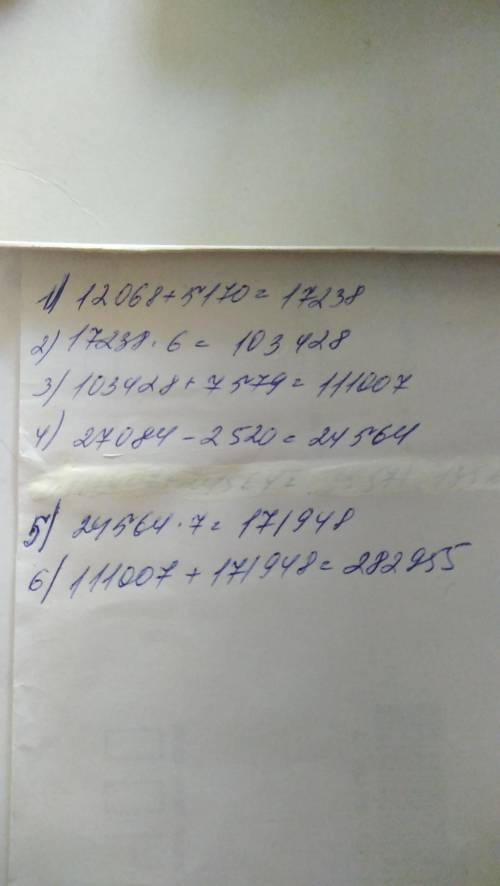 1) 12068+5170= 17238
2) 17238·6= 103428
3) 103428+7579=111007
4) 27084-2520=24564
5) 24564·7=171948
6) 111007+171948=282955